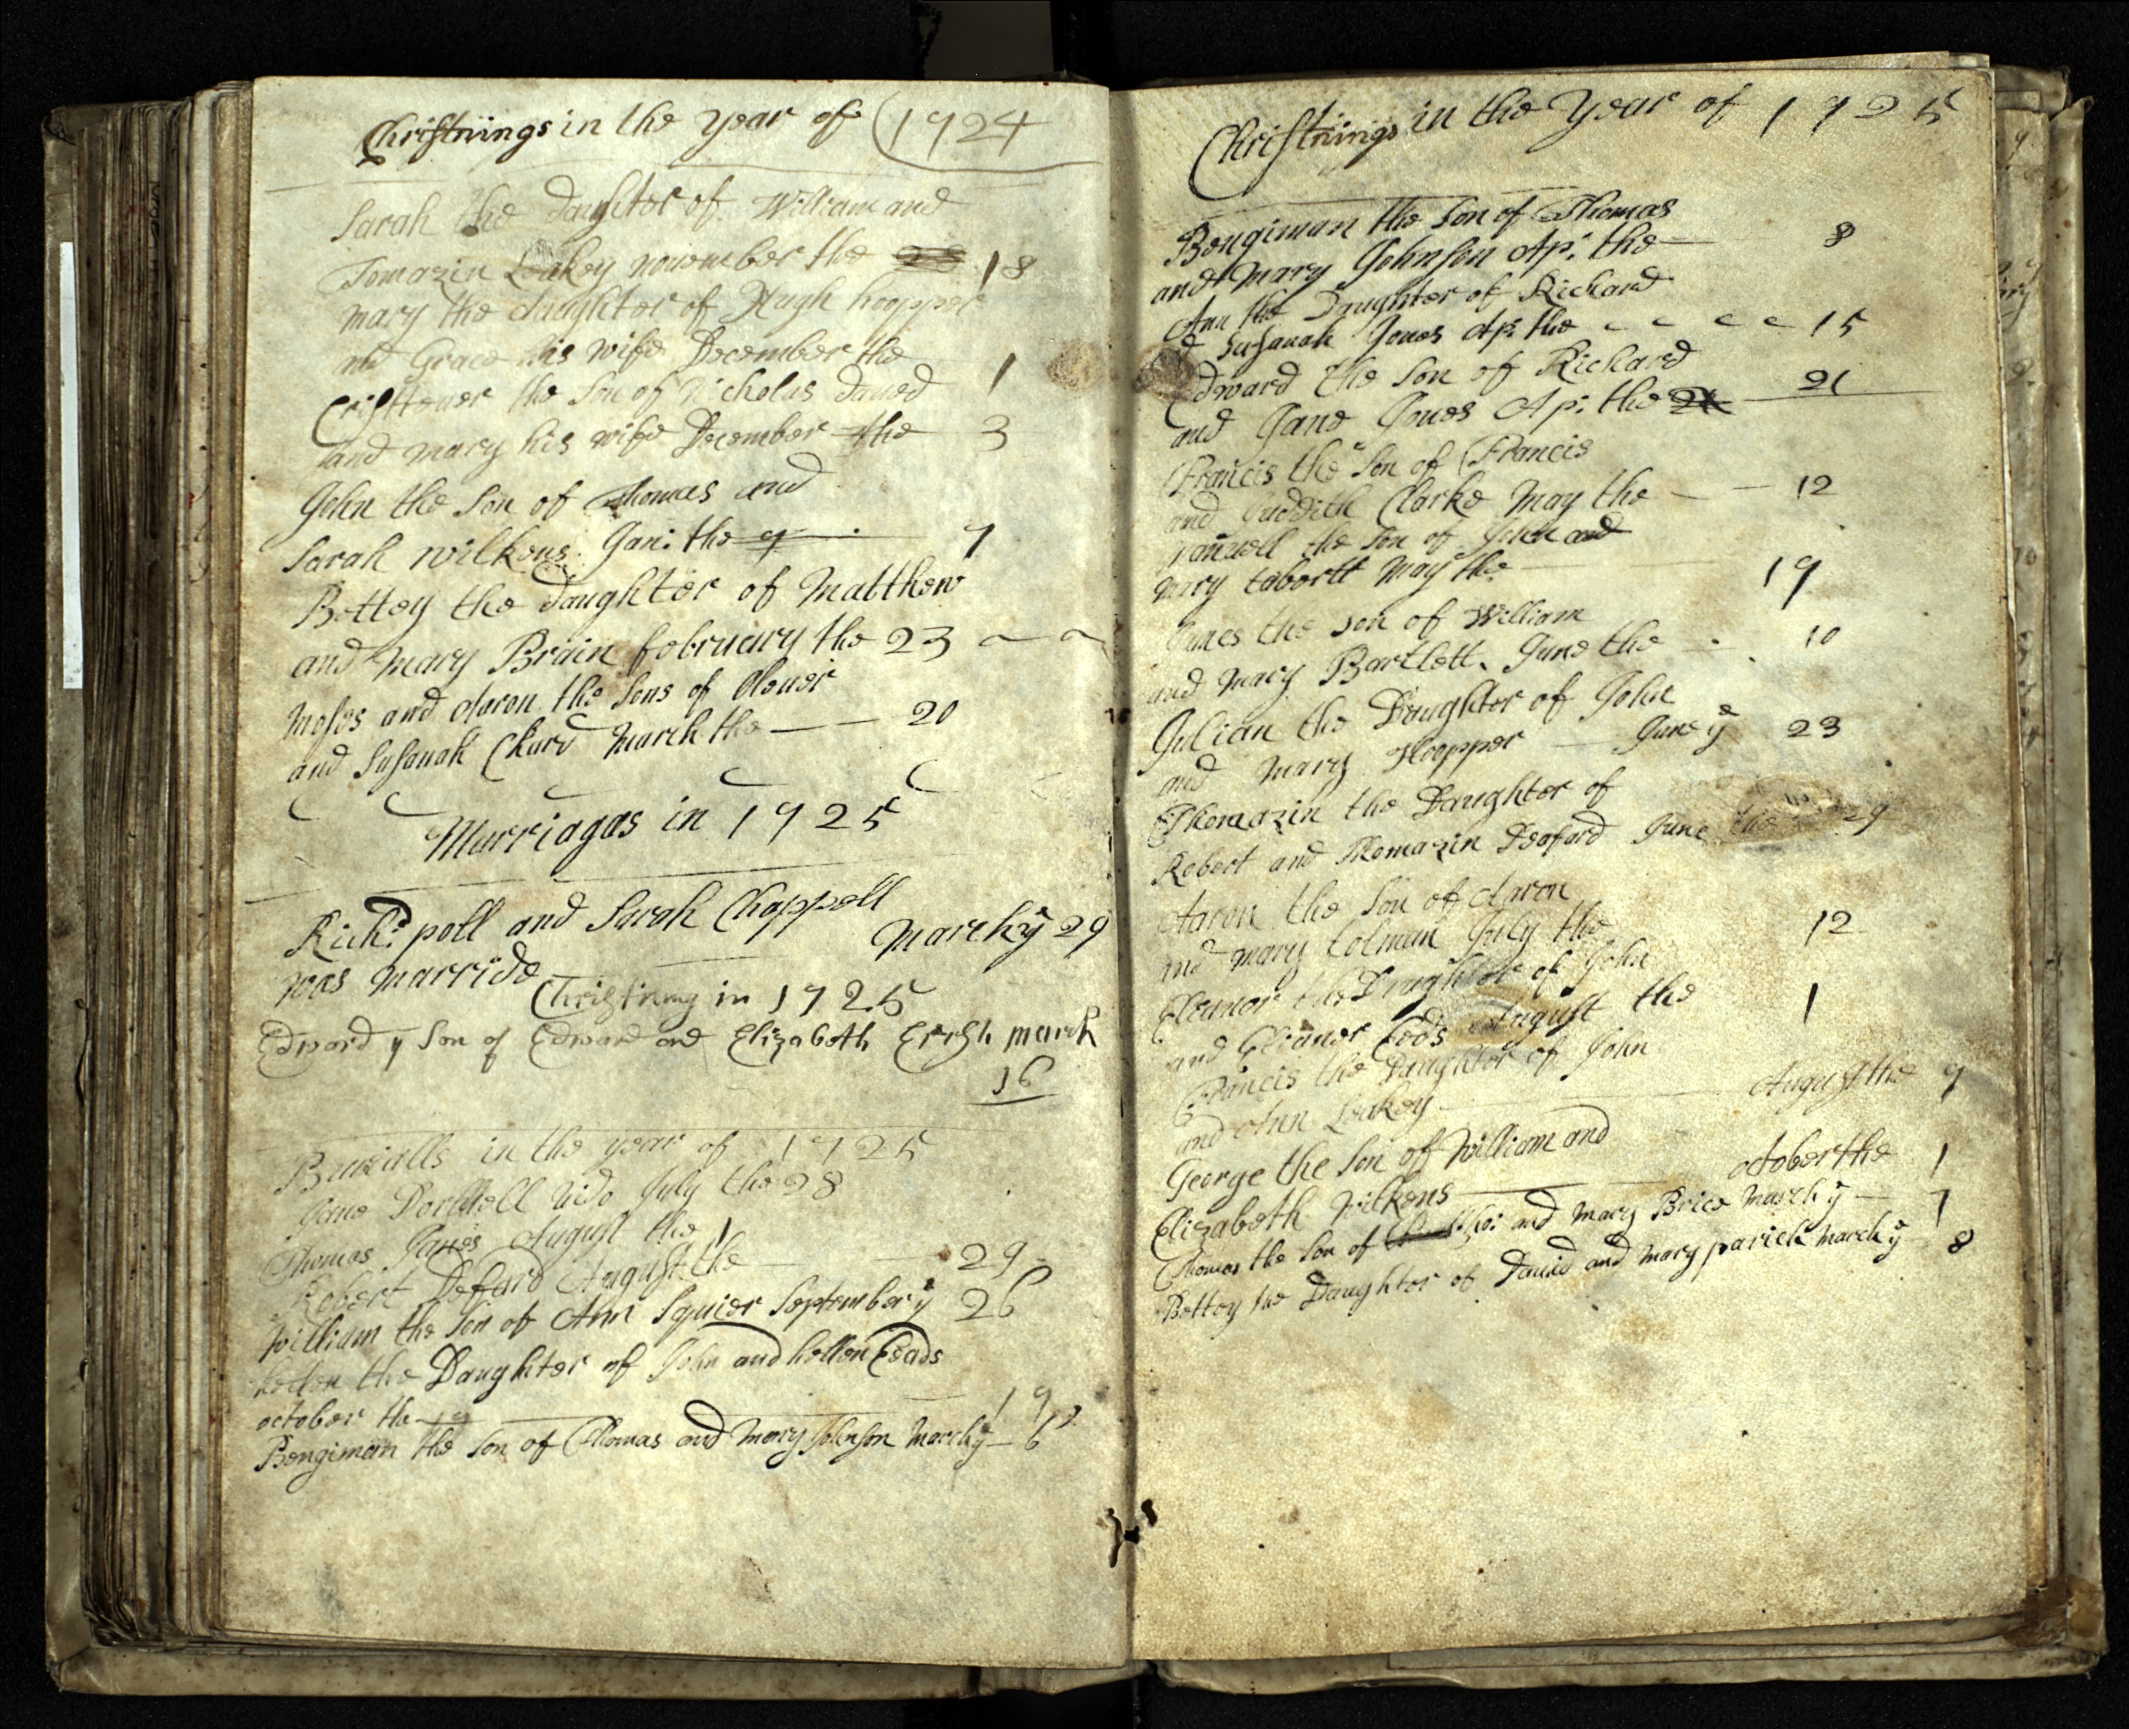 Christnings in the year of 1724
Sarah the daughter of William and
Tomazin Leakey november the 18
mary the daughter of Hugh hoopper
and Grace his wife December the 1
Cristever the Son of Nicholas
and mary his wife December the 3
John the Son of Thomas and
Sarah wilkens Jan: the 7
Bettey the Daughter of Matthew
and Mary Brain february the 23
Moses and Aaron the Sons of Olever
and Susanah Churd March the 20
Marriages in 1725
Rich: poll and Sarah Chappell
was Marride March ye 29
Christning in 1725
Edward y Son of Edward and Elizabeth march
16
Buriealls in the year of 1725
Jane July the 28
Thomas Janes August the 1
Robert Defard August the 29
William the Son of Ann Squier September ye 26
the Daughter of John and hellen Eeads
october the 19
Bengiman the Son of Thomas and Mary Johnson March ye 6
Christnings in the Year of 1725
Bengiman the Son of Thomas
and Mary Johnson Ap: the 8
Ann the Daughter of Richard
& Susanah Jones Ap: the 15
Edward the Son of Richard
and Jane Jones Ap: the 21
Francis the Son of Francis
and Juddith Clarke May the 12
the Son of John and
mary tabortt May the 19
James the son of William
and Mary Bartlett June the 10
Julian the Daughter of John
and Mary Hoopper June ye 23
Thomazin the Daughter of
Robert and Thomazin Deafard June the 29
Aaron the Son of Aaron
and mary Colman July the 12
Eleanor the Daughter of John
and Eleanor August the 1
Francis the Daughter of John
and Ann Leakey August the 9
George the Son of William and
Elizabeth Wilkens october the 1
Thomas the Son of Tho: and Mary Brice March ye 7
Bettey the Daughter of David and Mary parick March ye 8